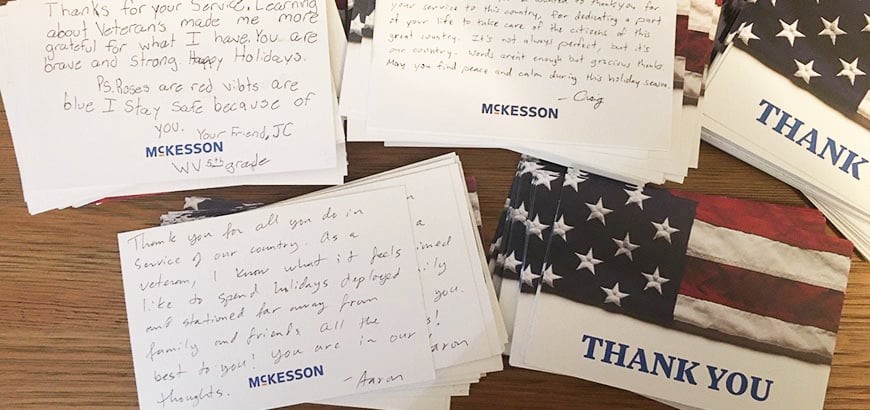 Thanks for your Service. Learning
about Veteran's made me more
grateful for what I have. You are
brave and strong. Happy Holidays.
Ps. Roses are red vibts are
blue I Stay Safe because of
you. Your Friend, JC
MCKESSON
WV 5th grade
wanted to thank you for
your service to this country, for dedicating a part
of your life to take care of the citizens of this
great country. It's not always perfect, but it's
our country. Words aren't enough but gracious thanks.
May you find peace and calm during this holiday season.
- Craig
MCKESSON
THANK
Thank you for all you do in
service of our country. As a
veteran, I know what it feels
like to spend holidays deployed
and stationed far away from
family and friends. All the
best to you! You are in our
thoughts.
MCKESSON
- Aaron
a
you.
THANK YOU